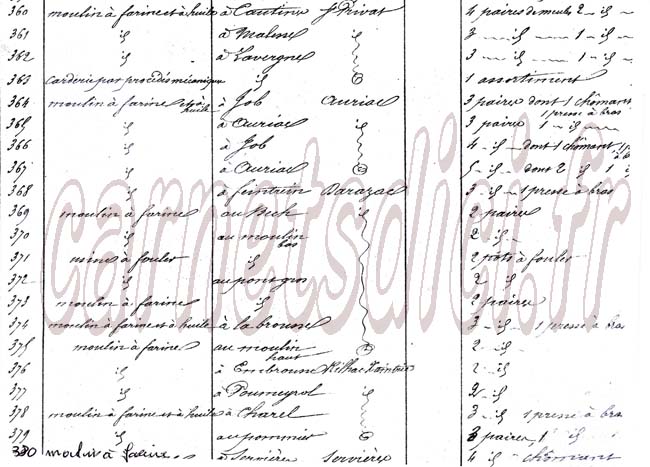 360 moulin à farine et à huile à Cautine St Privat 4 paires de meules 2 - id -
361 id à Malesse id 3 - id - 1 - id -
362 id à Lavergne 3 - id - 1 - id -
363 Carderie par procédés mécanique id 1 assortiment
364 moulin à farine et à huile à Job Auriac 3 paires dont 1 chômant
1 presse à bras
365 id à Auriac id 3 paires 1 - id -
366 id à Job 4 - id - dont 1 chômant 1 p
à b
367 id à Auriac 5 - id - dont 2 id 1 id
368 id à Darazac 3 - id - 1 presse à bras
369 moulin à farine au Bech id 2 paires
370 id au moulin bas 2 id -
371 usine à fouler id 2 pots à fouler
372 id au pont gros 2 id
373 moulin à farine id 2 paires
374 moulin à farine et à huile à la brousse 3 - id - 1 presse à bras
375 moulin à farine au moulin haut 2 - id
376 id à Embrousse Rilhac Xaintrie 2 - id
377 id à Poumeyrol id 2 - id
378 moulin à farine et à huile à Charel 3 - id 1 presse à bras
379 id au pommier 3 paires 1 id
380 moulin à farine à Servières Servières 4 id chômant
carnetsdici.fr